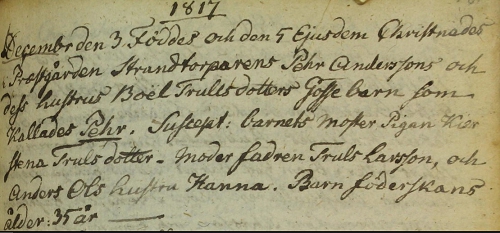 1817
Decembr den 3 Föddes och den 5 Ejusdem Christnades
i Prestgården Strandtorparens Pehr Anderssons och
dess hustrus Boel Trulsdotters Gossebarn som
Kallades Pehr. Suscept: barnets Moster Pigan Kier
stena Truls dotter - Moder fadren Truls Larsson, och
Anders Ols hustru Hanna. Barn föderskans
ålder: 35 år